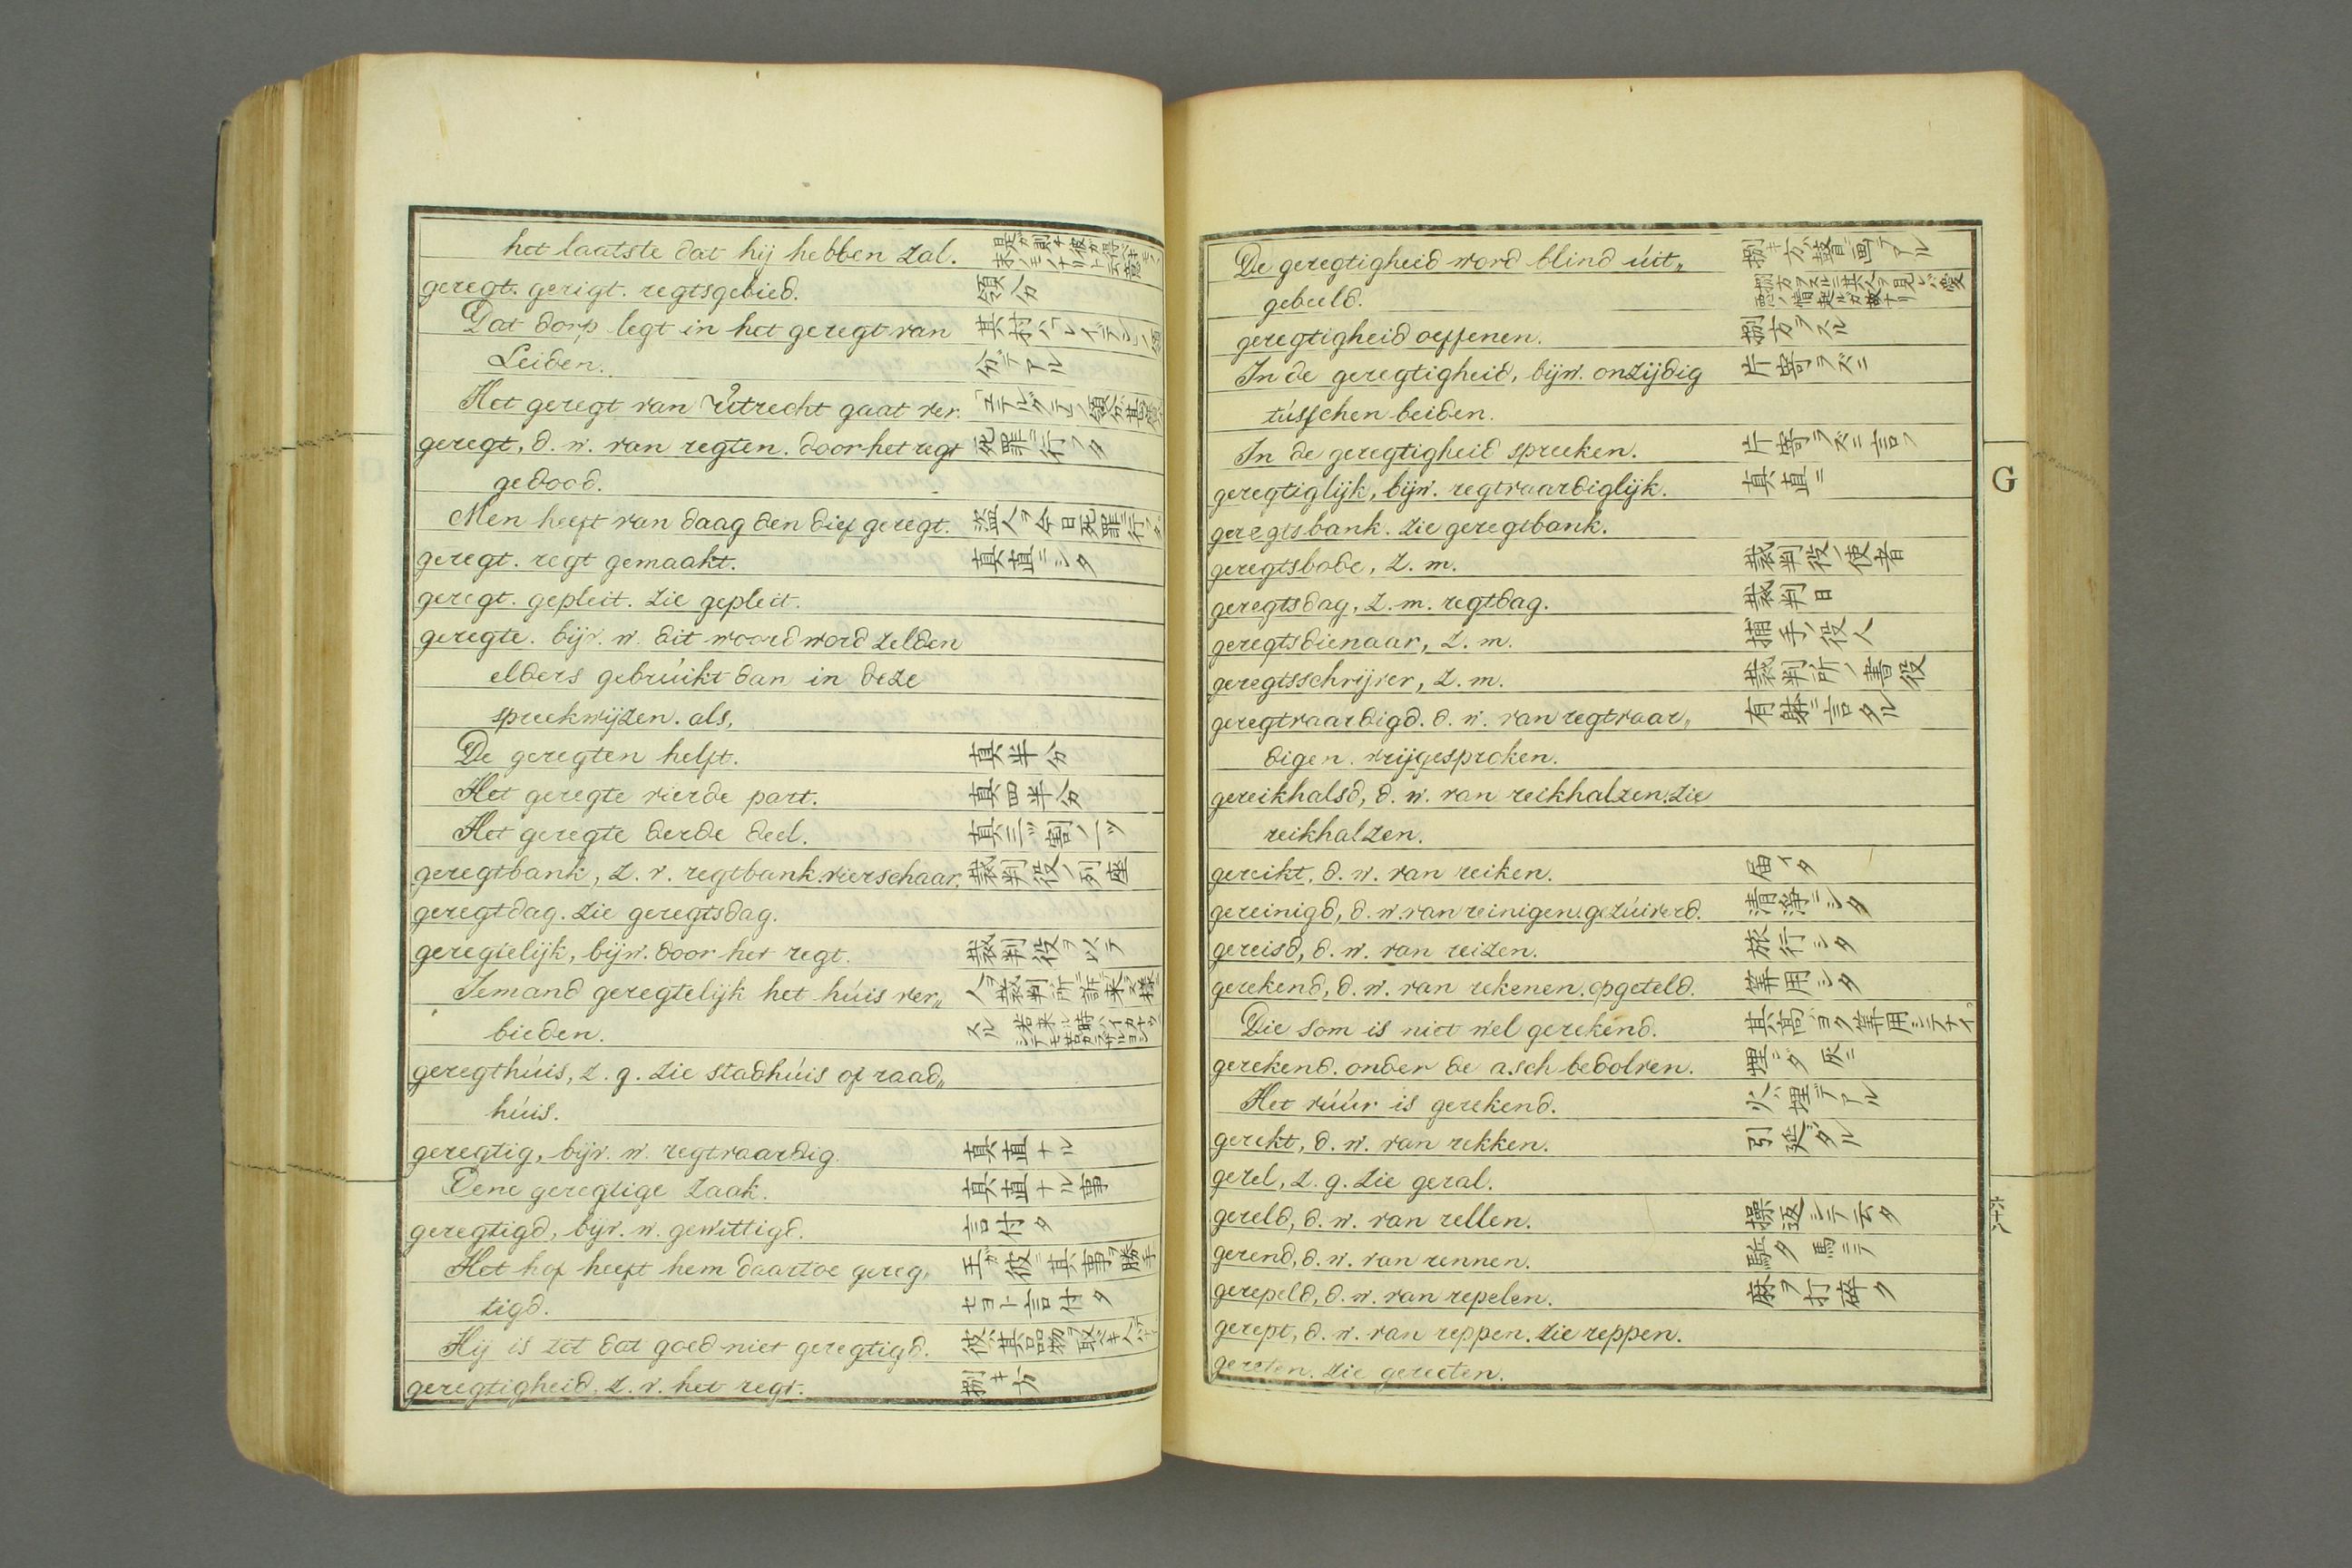 het laatste dat hij hebben zal.
geregt. gerigt. regtsgebied. 領分
Dat dorp legt in het geregt van 其村ハレイデン
Leiden. 分デアル
Het geregt van Utrecht gaat ver.
geregt, d. w. van regten. door het regt 死罪ニ行フタ
gedood.
Men heeft van daag den dief geregt. 盗人ヲ今日死罪ニ行フタ
geregt. regt gemaakt. 真直ニシタ
geregt. gepleit. zie gepleit.
geregte. bijv. w. dit woord word zelden
elders gebrúikt dan in deze
spreekwijzen. als,
De geregten helft. 真半分
Het geregte vierde part. 真四半分
Het geregte derde deel. 真三ツ割ノ一ツ
geregtbank, z. v. regtbank. vierschaar. 裁判役ノ列座
geregtdag. zie geregtsdag.
geregtelijk, bijw. door het regt. 裁判役ヲ以テ
Iemand geregtelijk het húis ver„
bieden.
geregthúis, z. g. zie stadhúis of raad„
húis.
geregtig, bijv. w. regtvaardig. 真直ナル
Eene geregtige zaak. 真直ナル事
geregtigd, bijv. w. gewettigd. 言付タ
Het hof heeft hem daartoe gereg„ 王ガ彼ニ其事ヲ勝手
tigd. セヨト言付タ
Hij is tot dat goed niet geregtigd.
geregtigheid. z. v. het regt. 捌キ方
De geregtigheid word blind úit„ 捌キ方ハ瞽ニ画テアル
gebeeld.
geregtigheid oeffenen. 捌方ヲスル
In de geregtigheid, bijw. onzijdig 片寄ラズニ
tússchen beiden.
In de geregtigheid spreeken. 片寄ラズニ言フ
geregtiglijk, bijw. regtvaardiglijk. 真直ニ
geregtsbank. zie geregtbank.
geregtsbode, z. m. 裁判役ノ使者
geregtsdag, z. m. regtdag. 裁判日
geregtsdienaar, z. m. 捕手ノ役人
geregtsschrijver, z. m. 裁判所ノ書役
geregtvaardigd. d. w. van regtvaar„ 有躰ニ言タル
digen. vrijgesproken.
gereikhalsd, d. w. van reikhalzen. zie
reikhalzen.
gereikt, d. w. van reiken. 届イタ
gereinigd, d. w. van reinigen. gezúiverd. 清浄ニシタ
gereisd, d. w. van reizen. 旅行シタ
gerekend, d. w. van rekenen. opgeteld. 筭用シタ
Die som is niet wel gerekend. 其高ハヨク筭用シテナイ
gerekend. onder de asch bedolven. 埋ンダ 灰ニ
Het vúúr is gerekend. 火ハ埋テアル
gerekt, d. w. van rekken. 引延ダル
gerel, z. g. zie geral.
gereld, d. w. van rellen. 操返シテ云タ
gerend, d. w. van rennen. 駈タ 馬ニテ
gerepeld, d. w. van repelen. 麻ヲ打碎ク
gerept, d. w. van reppen. zie reppen.
gereten. zie gereeten.
G